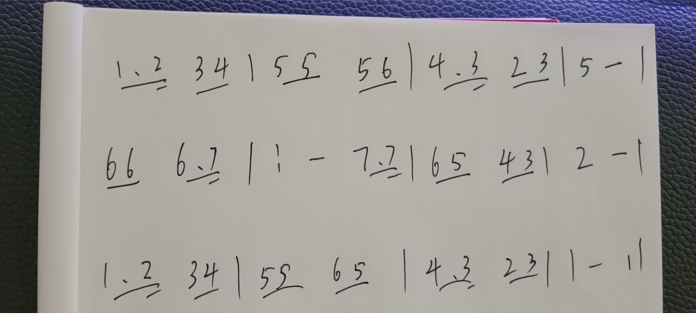 1.2 34 | 55 56 | 4.3 23 | 5 - |
66 6.7 | i - 7.7 | 65 43 | 2 - |
1.2 34 | 55 65 | 4.3 23 | 1 - ||